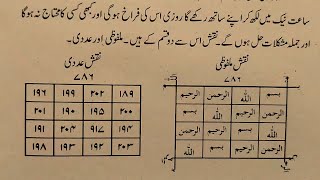 ساعت نیک میں لکھ کر اپنے ساتھ رکھے گا روزی اس کی فراخ ہوگی اور کبھی کسی کا محتاج نہ ہوگا
اور جملہ مشکلات حل ہوں گے۔ نقش اس سے دو قسم کے ہیں۔ ملفوظی اور عددی۔
نقش ملفوظی
۷۸۶
بسم اللہ الرحمن الرحیم
الرحمن الرحیم اللہ بسم
اللہ بسم الرحیم الرحمن
الرحیم الرحمن بسم اللہ
نقش عددی
۷۸۶
۱۸۹ ۲۰۲ ۱۹۹ ۱۹۶
۲۰۰ ۱۹۵ ۱۹۰ ۲۰۱
۱۹۴ ۹۱۷ ۲۰۴ ۱۹۱
۲۰۳ ۱۹۲ ۱۹۳ ۱۹۸